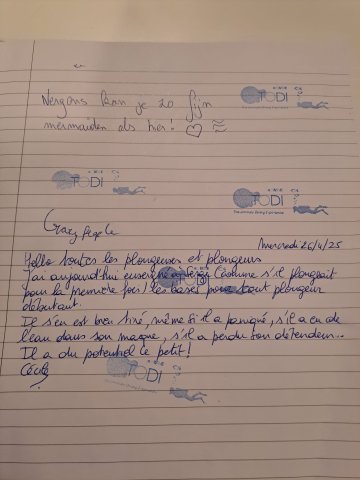 Nergens kan je zo fijn
mermaiden als hier!
TODI
TODI
TODI
Crazy People
Mercredi 26/4/25
Hello toutes les plongeuses et plongeurs
J'ai aujourd'hui enseigné à comme s'il plongeait
pour la première fois! les bases pour tout plongeur
débutant.
Il s'en est bien tiré, même si il a paniqué, s'il a eu de
l'eau dans son masque, s'il a perdu son détendeur...
Il a du potentiel le petit!
Cécile
TODI
TODI